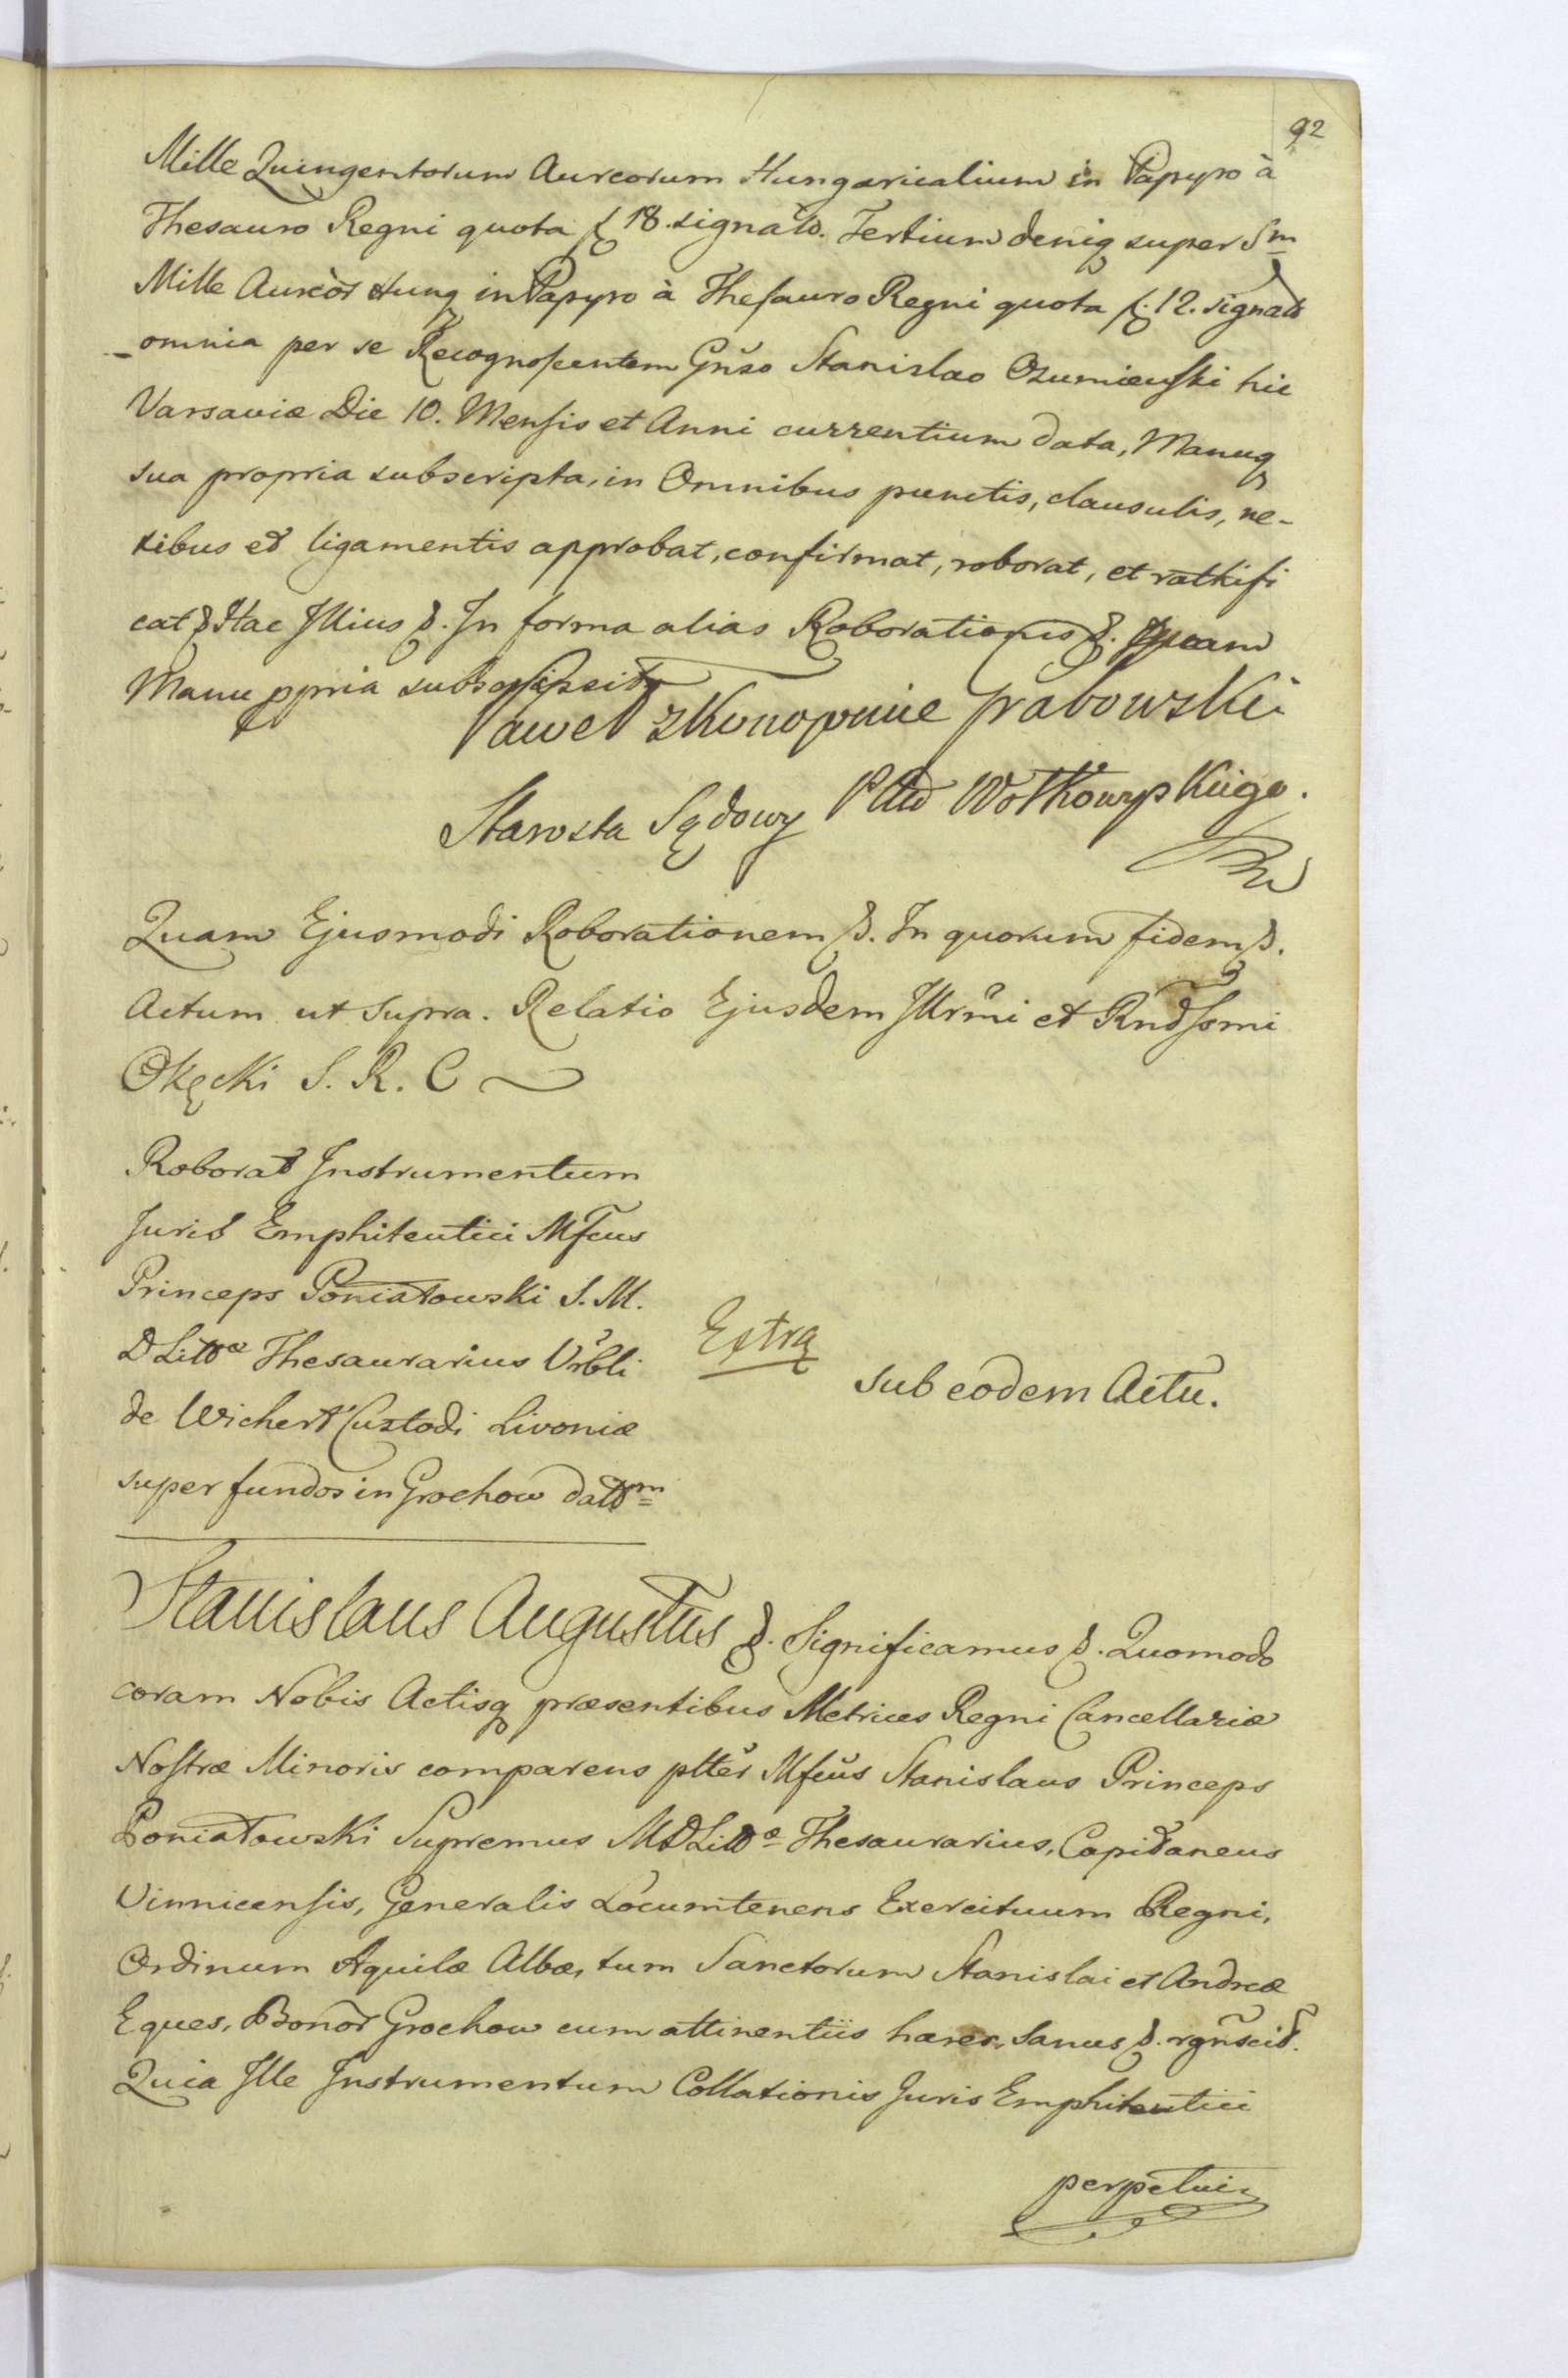 92
Mille Quingentorum Aureorum Hungaricalium in Papyro à
Thesauro Regni quota 18. signato. Tertium deniq super Sm
Mille Aureor Hung in Papyro à Thesauro Regni quota 12. signato
omnia per se Recognoscentem Gnso Stanislao Ozumienski hic
Varsaviæ Die 10. Mensis et Anni currentium data, Manuq
sua propria subscripta, in Omnibus punctis, clausulis, ne-
xibus et ligamentis approbat, confirmat, roborat, et rathifi
cat Hac Illius. In forma alias Roborationis. Quam
Manu ppria subscripsit
Paweł z Konopnice Grabowski
Starosta Sądowy Pttu Wołkowyskiego.
Quam Ejusmodi Roborationem. In quorum fidem.
Actum ut supra. Relatio Ejusdem Illrmi et Rndssmi
Okęcki S. R. C
Roborat Instrumentum
Juris Emphiteutici Mfcus
Princeps Poniatowski S. M.
D Littæ Thesaurarius Urbli
de Wichert Custodi Livoniæ
super fundos in Grochow dattm
Extra
sub eodem Actu.
Stanislaus Augustus. Significamus. Quomodo
coram Nobis Actisq præsentibus Metrices Regni Cancellariæ
Nostræ Minoris comparens pltter Mfcus Stanislaus Princeps
Poniatowski Supremus MDLittæ Thesaurarius, Capitaneus
Vinnicensis, Generalis Locumtenens Exercituum Regni,
Ordinum Aquilæ Albæ, tum Sanctorum Stanislai et Andreæ
Eques, Bonor Grochow cum attinentiis hæres, sanus. rgnscit.
Quia Ille Instrumentum Collationis Juris Emphiteutici
perpetui